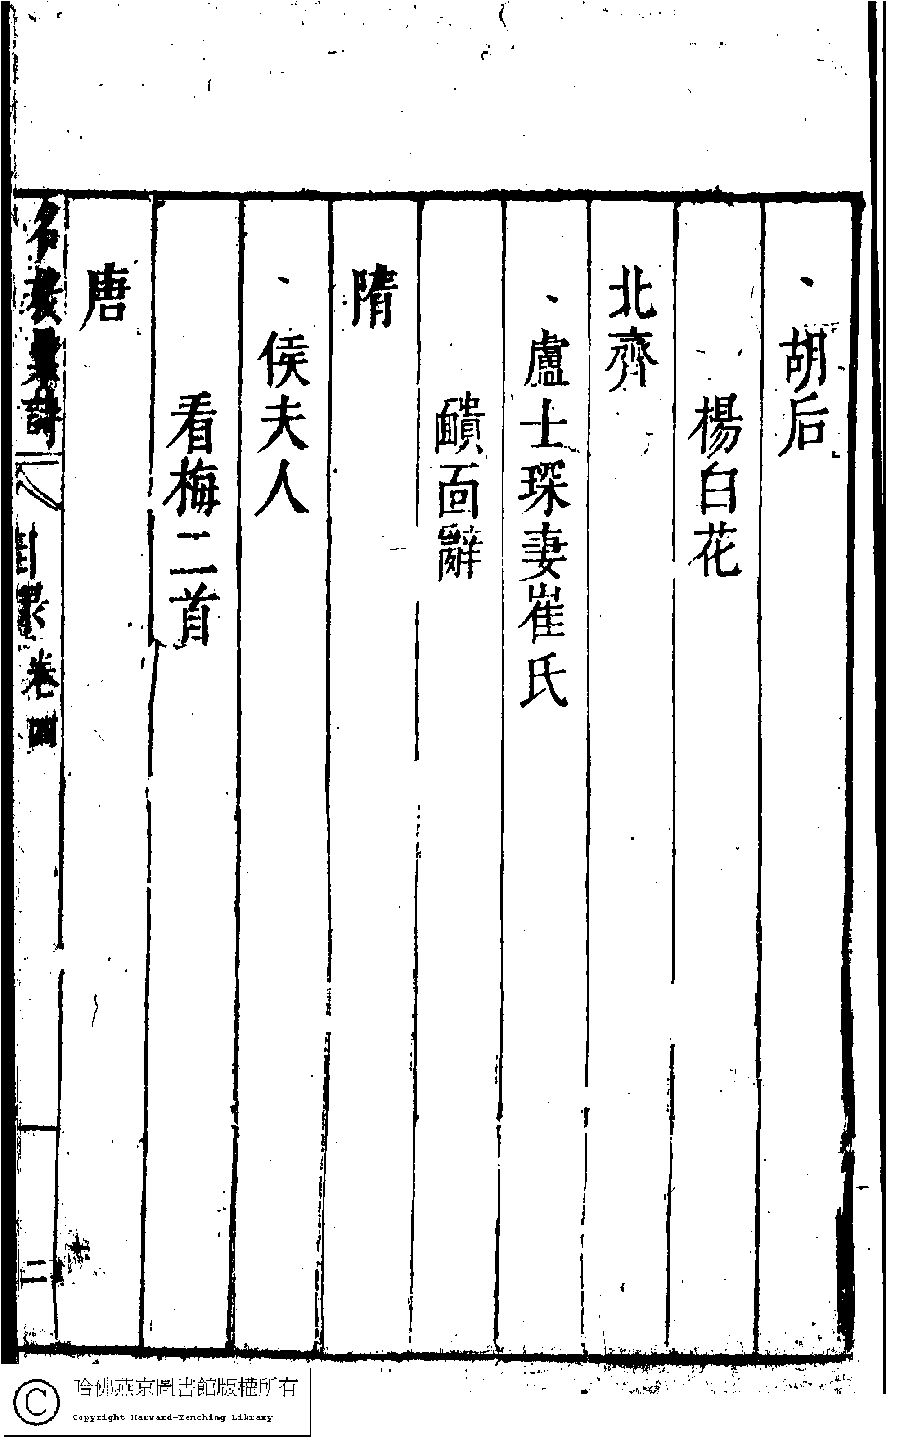 胡后
楊白花
北齊
盧士琛妻崔氏
靧面辭
隋
侯夫人
看梅二首
唐
名媛彙詩
目錄卷四
二
哈佛燕京圖書館版權所有
Copyright Harvard-Yenching Library